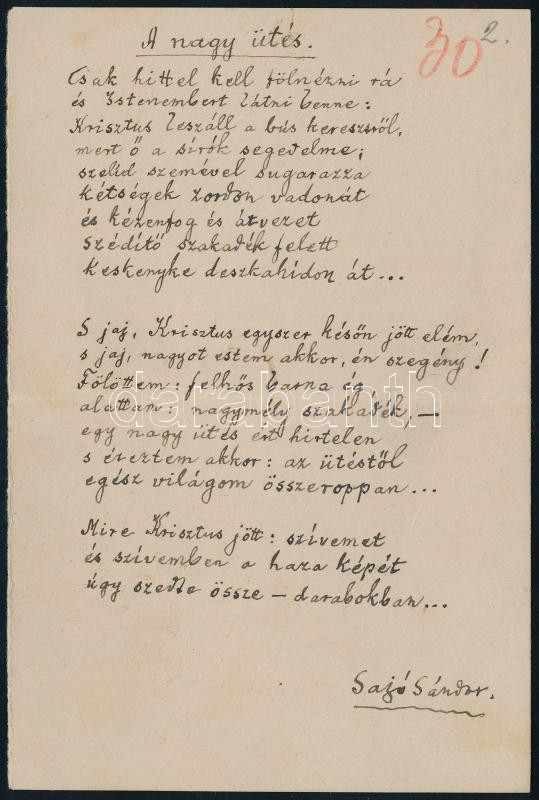 A nagy ütés.
30
2.
Csak hittel kell fölnézni rá
és Istenembert látni benne:
Krisztus leszáll a bús keresztről,
mert ő a sírók segedelme;
szelíd szemével sugarazza
kétségek zordon vadonát
és kézenfog és átvezet
szédítő szakadék felett
keskenyke deszkahídon át...
S jaj, Krisztus egyszer későn jött elém,
s jaj, nagyot estem akkor, én szegény!
Fölöttem: felhős barna ég,
alattam: nagymély szakadék, —
egy nagy ütés ért hirtelen
s éreztem akkor: az ütéstől
egész világom összeroppan...
Mire Krisztus jött: szívemet
és szívemben a haza képét
úgy szedte össze — darabokban...
Sajó Sándor.
darabanth